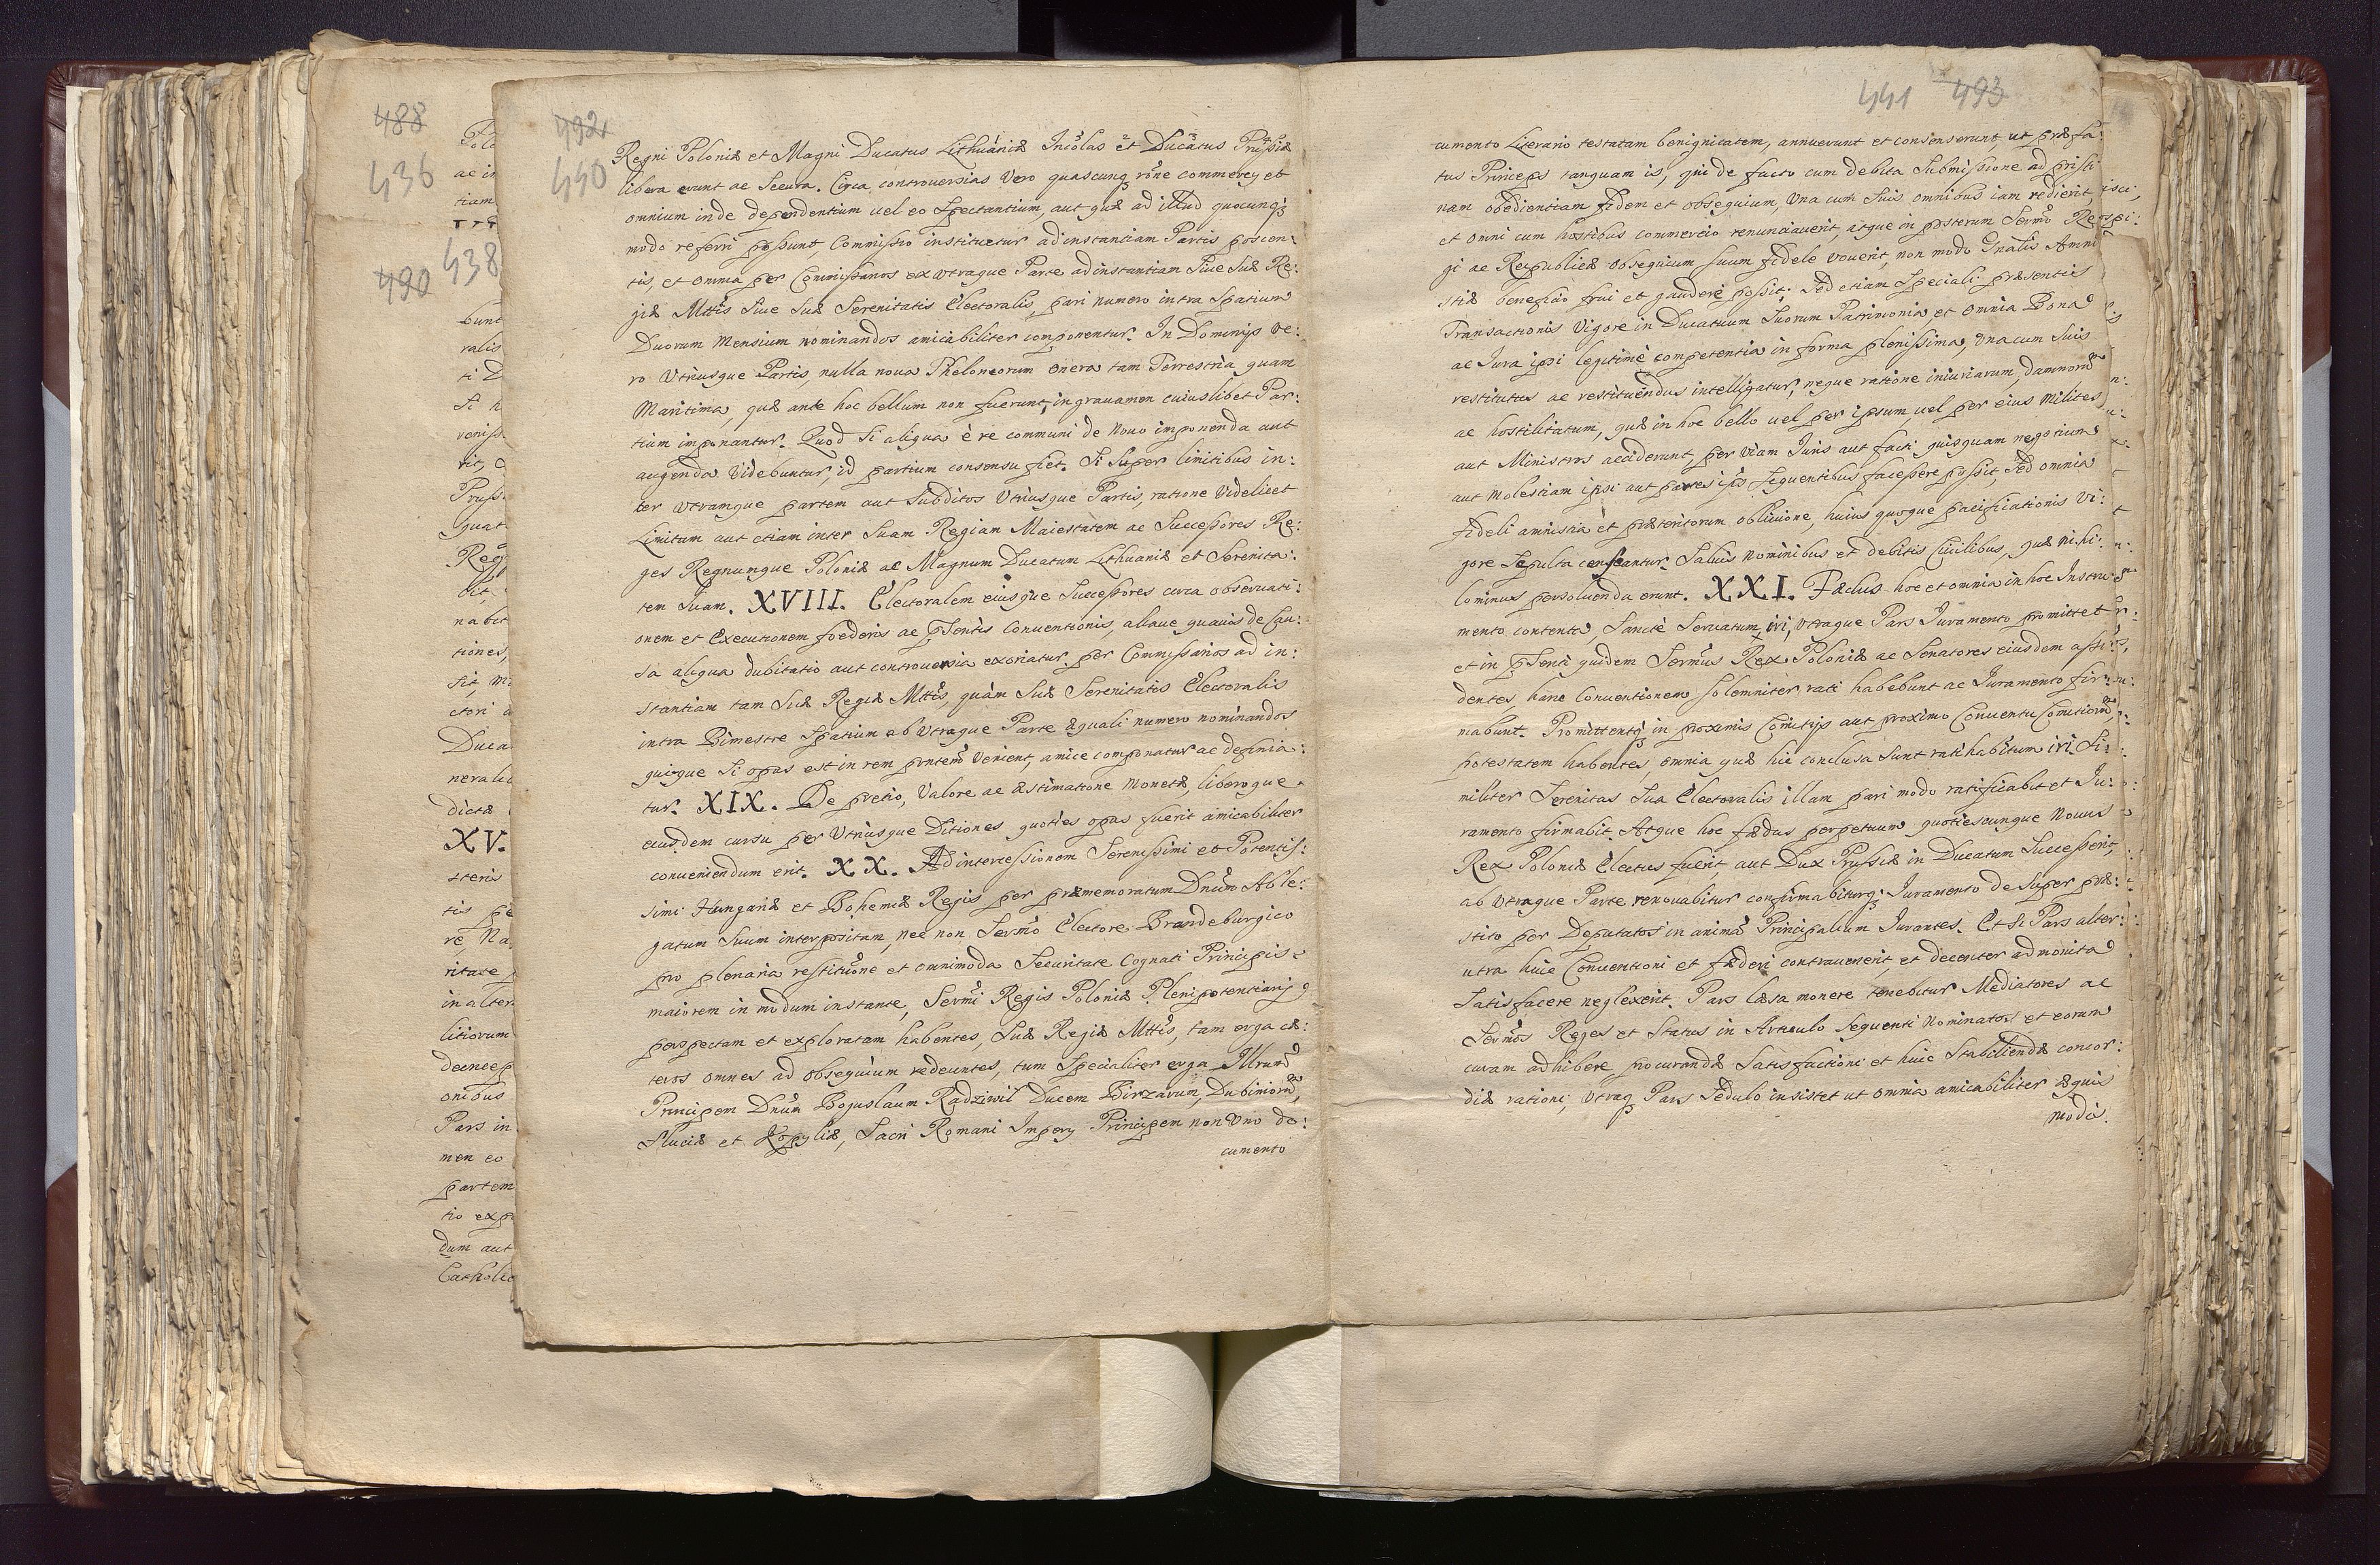 488
436
490 438
492
440
Regni Poloniæ et Magni Ducatus Lithuaniæ Incolas et Ducatus Prussiæ
libera erunt ac Secura. Circa controversias Vero quascunq; rõne commercij et
omnium inde dependentium uel eo Spectantium, aut quæ ad illud quocunq;
modo referri possunt, Commissio instituetur ad instantiam Partis poscen:
tis, et omnia per Commissarios ex utraque Parte ad instantiam Siue Suæ Re:
giæ Mttis Siue Suæ Serenitatis Electoralis, pari numero intra Spatium
Duorum Mensium nominandos amicabiliter componentur. In Dominijs ve:
ro Utriusque Partis, nulla noua Theloneorum onera tam Terrestria quam
Maritima, quæ ante hoc bellum non fuerunt, in grauamen cuiuslibet Par:
tium imponantur. Quod Si aliqua è re communi de Nouo imponenda aut
augenda Videbuntur, id partium consensu fiet. Si Super limitibus in:
ter utramque partem aut Subditos Utriusque Partis, ratione Videlicet
Limitum aut etiam inter Suam Regiam Maiestatem ac Successores Re:
ges Regnumque Poloniæ ac Magnum Ducatum Lithuaniæ et Serenita:
tem Suam. XVIII. Electoralem eiusque Successores circa obseruati:
onem et Executionem foederis ac pñsentis Conuentionis, aliaue quauis de Cau:
sa aliqua dubitatio aut controuersia exoriatur per Commissarios ad in:
stantiam tam Suæ Regiæ Mttis, quàm Suæ Serenitatis Electoralis
intra Bimestre Spatium ab Utraque Parte æquali numero nominandos
quique Si opus est in rem pñntem Venient, amice componatur ac definia:
tur. XIX. De pretio, Valore ac æstimatione Monetæ, liberoque
eiusdem cursu per Utriusque Ditiones quoties opus fuerit amicabiliter
conueniendum erit. XX. Ad intercessionem Serenissimi et Potentis:
simi Hungariæ et Bohemiæ Regis per præmemoratum Dnũm Able:
gatum Suum interpositam, nec non Sermõ Electore Brandeburgico
pro plenaria restitũone et omnimoda Securitate Cognati Principis
maiorem in modum instante, Sermĩ Regis Poloniæ Plenipotentiarij
perspectam et exploratam habentes, Suæ Regiæ Mttis, tam erga cæ:
teros omnes ad obsequium redeuntes, tum Specialiter erga Illrum̃
Principem Dnũm Boguslaum Radziwil Ducem Birzarum, Dubiniorũ,
Sluciæ et Kopyliæ, Sacri Romani Impery Principem non Uno do:
cumento
441 493
cumento Literario testatam benignitatem, annuerunt et consenserunt, ut præfa:
tus Princeps tanquam is, qui de facto cum debita Submissione ad pristi
nam obedientiam fidem et obsequium, Una cum Suis omnibus iam redierit,
et omni cum hostibus commercio renunciauerit, atque in posterum Sermõ Re:
gi ac Reipublicæ obsequium suum fidele vouerit, non modo Gnalis Amni
stiæ beneficio frui et gaudere possit; Sed etiam Speciali præsentis
Transactionis Vigore in Ducatuum Suorum Patrimonia et omnia Bona
ac Iura ipsi legitimè competentia in forma plenissima, Una cum Suis
restitutus ac restituendus intelligatur, neque ratione iniuriarum, damnorũ
ac hostilitatum, quæ in hoc bello uel per ipsum uel per eius Milites
aut Ministros acciderunt, per Viam Iuris aut facti quisquam negotium
aut Molestiam ipsi aut partes ipsius Sequentibus facessere possit, Sed omnia
fideli amnistia et præteritorum obliuione, huius quoque pacificationis Vi:
gore Sepulta censeantur. Saluis Nominibus et debitis Ciuilibus, quæ nihi:
lominus persoluenda erunt. XXI. Fædus hoc et omnia in hoc Instru
mento contenta, Sanctè Seruatum iri, Utraque Pars Iuramento promittet
et in pñsenti quidem Sermũs Rex Poloniæ ac Senatores eiusdem assi:
dentes, hanc Conuentionem Solemniter rati habebunt ac Iuramento fir:
mabunt. Promittentq; in proximis Comitijs aut proximo Conuentu Comitiorũ,
potestatem habentes, omnia quæ hic conclusa Sunt rati habitum iri. Si:
militer Serenitas Sua Electoralis illam pari modo ratificabit et Iu:
ramento firmabit. Atque hoc fædus perpetuum quotiescunque Nouus
Rex Poloniæ Electus fuerit, aut Dux Prussiæ in Ducatum Successerit,
ab Utraque Parte renouabitur confirmabiturq; Iuramento de Super præ:
stito per Deputatos in animã Principalium Iurantes. Et Si Pars alter:
utra huic Conuentioni et fæderi contrauenerit, et decenter admonita
Satisfacere neglexerit. Pars læsa monere tenebitur Mediatores ac
Sermõs Reges et Status in Articulo Sequenti Nominatos et eorum
curam adhibere procurandæ Satisfactioni et huic Stabiliendæ concor:
diæ rationi, Utraq; Pars Sedulo insistet ut omnia amicabiliter æquis
modis.